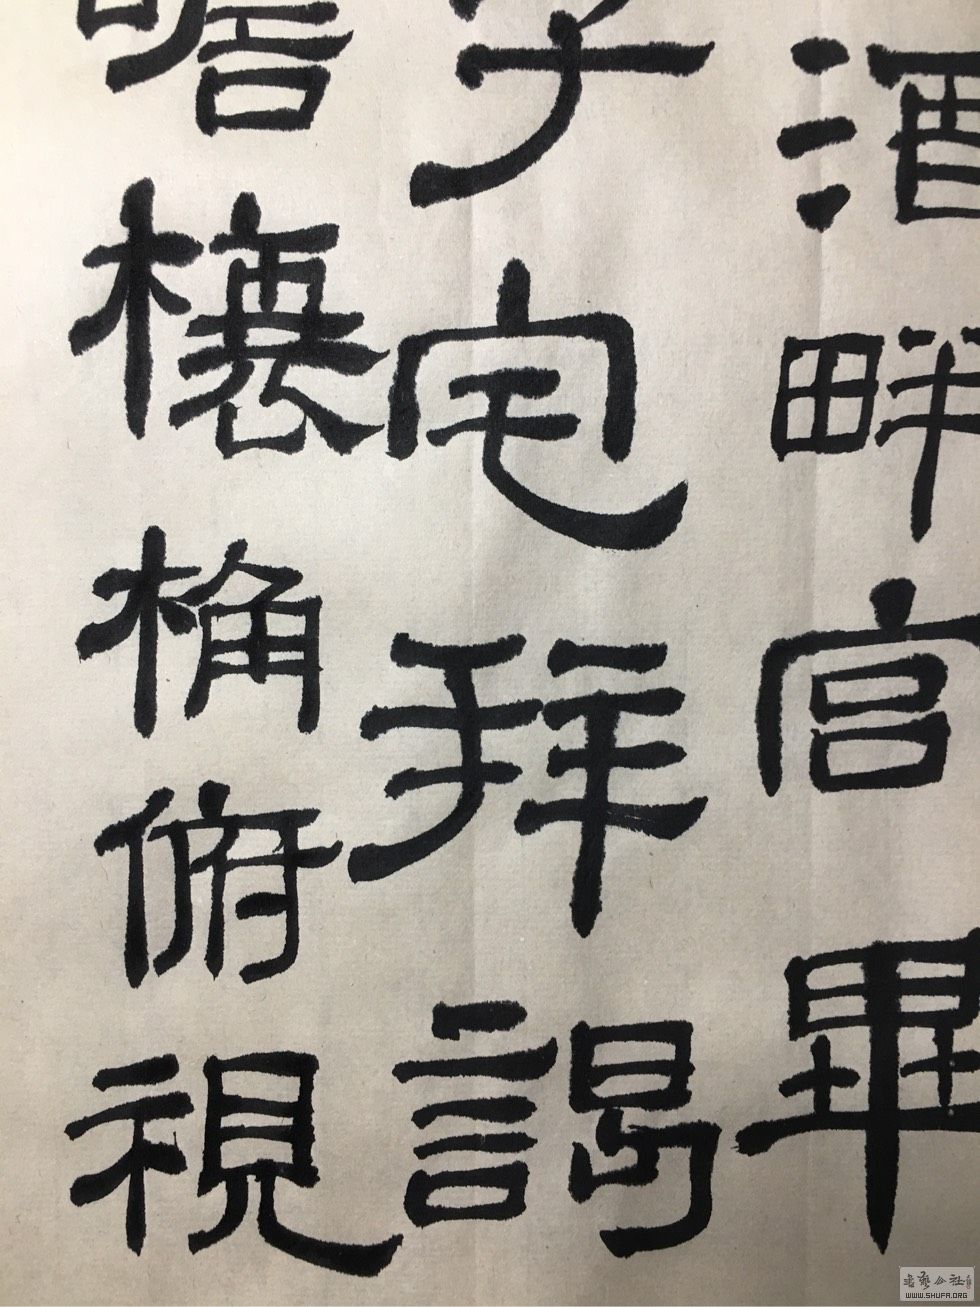 酒畔宮畢
子宅拜謁
瞻榱桷俯視
書藝公社
WWW.SHUFA.ORG